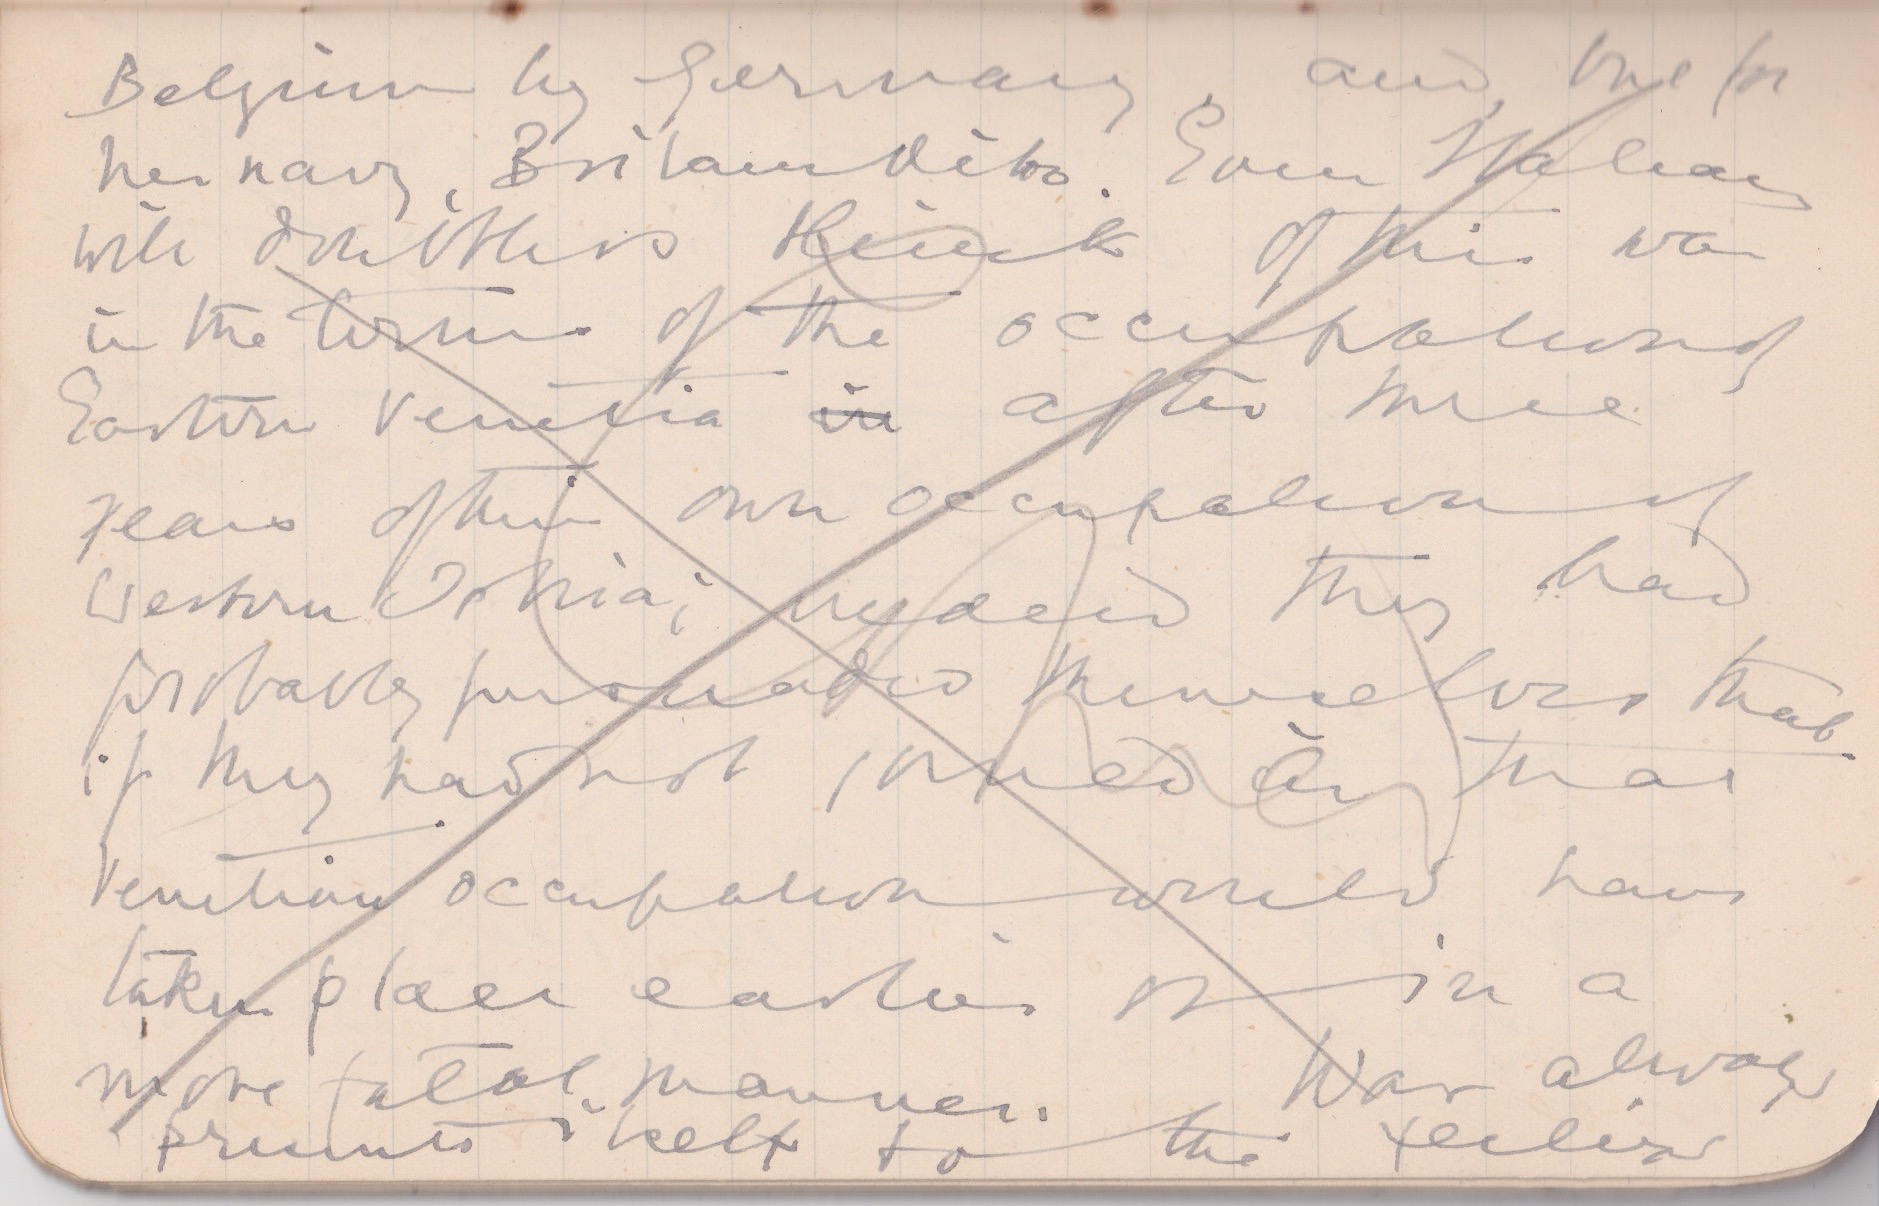 Belgium by Germany, and, but for
her navy, Britain ditto. Even Italians
will doubtless think of this war
in the terms of the occupation of
Eastern Venetia in after three
years of their own occupation of
Western Istria; indeed they had
probably persuaded themselves that
if they had not joined in that
Venetian occupation would have
taken place earlier or in a
more fatal manner. War always
presents itself to the feelings